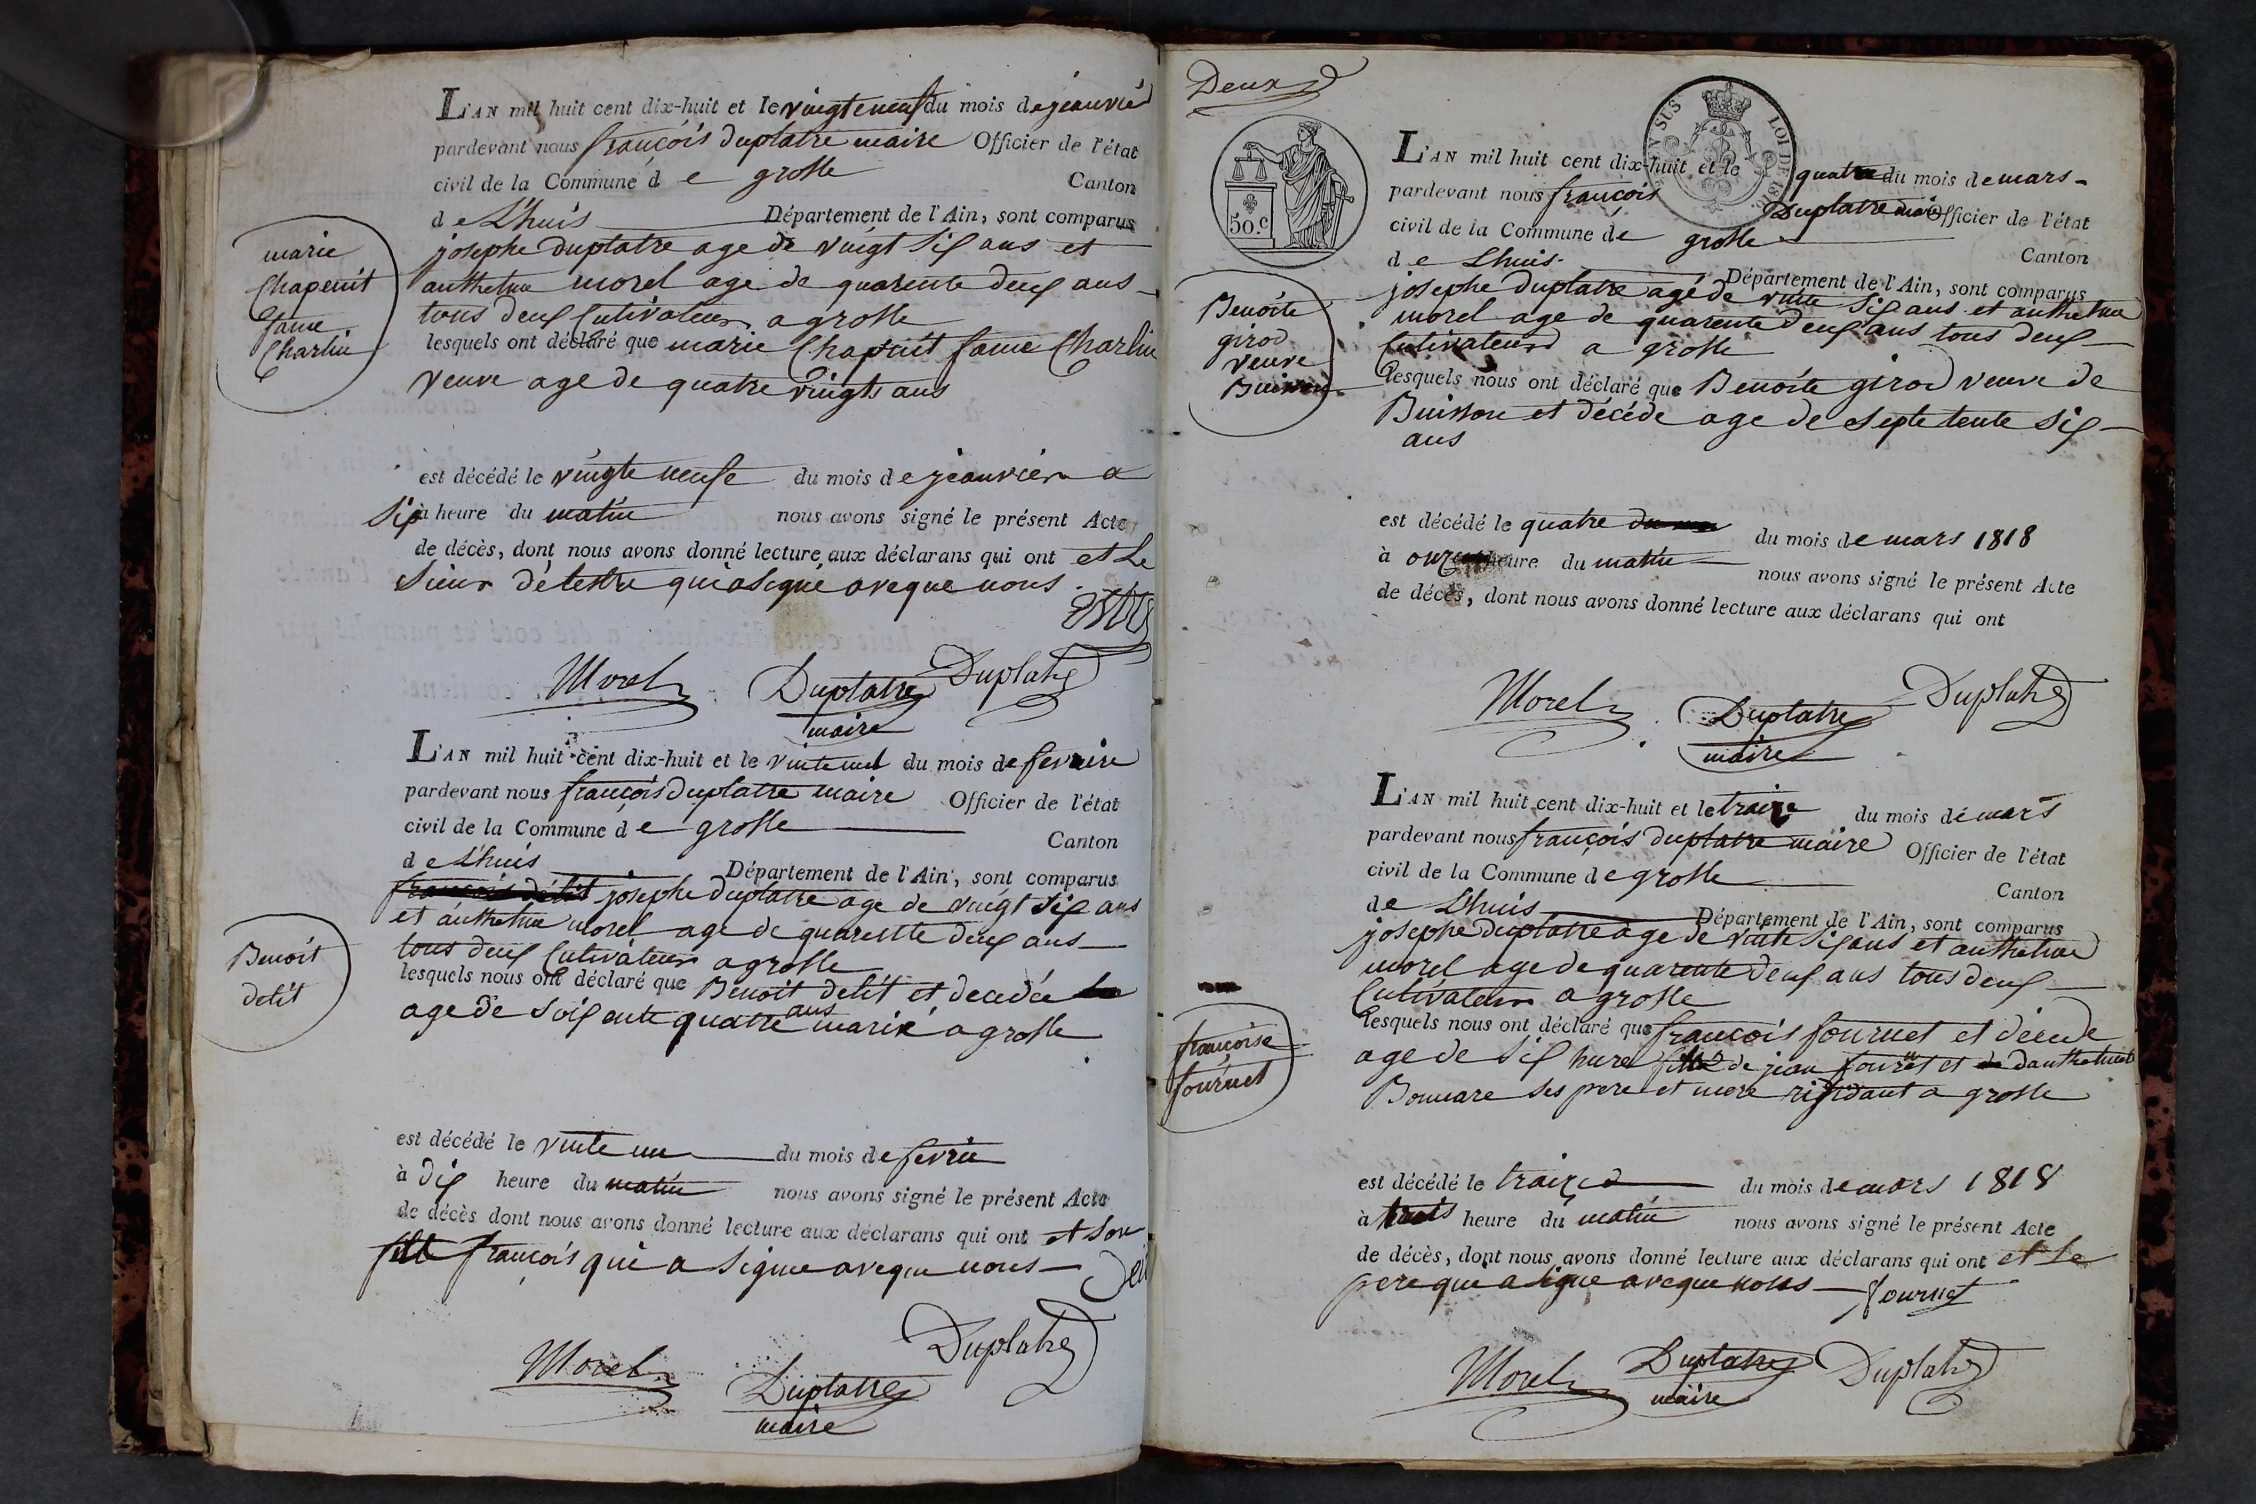 L'AN mil huit cent dix-huit et le vingteneuf du mois de jeanvier
pardevant nous françois duplatre maire Officier de l'état
civil de la Commune de grosle Canton
de Lhuis Département de l'Ain, sont comparus
josephe duplatre age de vingt six ans et
anthelme morel age de quarente deux ans
tous deux Cutivateur a grosle
lesquels ont déclaré que marie Chapuit fame Charlin
veuve age de quatre vingts ans
marie
Chapeuit
fame
Charlin
est décédé le vingte neufe du mois de jeanvier a
six à heure du matin nous avons signé le présent Acte
de décès, dont nous avons donné lecture aux déclarans qui ont et Le
sieur détestre qui a signé aveque nous
Morel Duplatre Duplatre
maire
L'AN mil huit cent dix-huit et le vinteun du mois de fevrire
pardevant nous françois duplatre maire Officier de l'état
civil de la Commune de grosle Canton
de Lhuis Département de l'Ain, sont comparus
josephe duplatre age de vingt six ans
et anthelme morel age de quarente deux ans
tous deux Cutivateur a grosle
lesquels nous ont déclaré que Benoit delit et decedée
age de soix ente quatre ans marié a grosle
Benoit
delit
est décédé le vinte un du mois de fevrie
à dix heure du matin nous avons signé le présent Acte
de décès dont nous avons donné lecture aux déclarans qui ont et son
fill françois qui a signe aveque nous
Morel Duplatre Duplatre
maire
Deux
50.c
LOI DE 18
L'AN mil huit cent dix-huit et le quatre du mois de mars
pardevant nous françois Duplatre maire Officier de l'état
civil de la Commune de grosle Canton
de Lhuis Département de l'Ain, sont comparus
josephe duplatre agé de vinte six ans et anthelme
morel age de quarente deux ans tous deux
Cutivateur a grosle
lesquels nous ont déclaré que Benoite girod veuve de
Buisson et décéde age de septe tente six
ans
Benoite
girod
veuve
Buisson
est décédé le quatre du mois de mars 1818
à onze heure du matin nous avons signé le présent Acte
de décès, dont nous avons donné lecture aux déclarans qui ont
Morel Duplatre Duplatre
maire
L'AN mil huit cent dix-huit et le traize du mois de mars
pardevant nous françois duplatre maire Officier de l'état
civil de la Commune de grosle Canton
de Lhuis Département de l'Ain, sont comparus
josephe duplatre age de vinte six ans et anthelme
morel age de quarente deux ans tous deux
Cutivateur a grosle
lesquels nous ont déclaré que françois fournet et décede
age de six hure fille de jean fournet et danthelmet
Bonnare ses pere et mere risidant a grosle
françoise
fournet
est décédé le traize du mois de mars 1818
à huits heure du matin nous avons signé le présent Acte
de décès, dont nous avons donné lecture aux déclarans qui ont et Le
pere qui a signe aveque nous fournet
Morel Duplatre Duplatre
maire